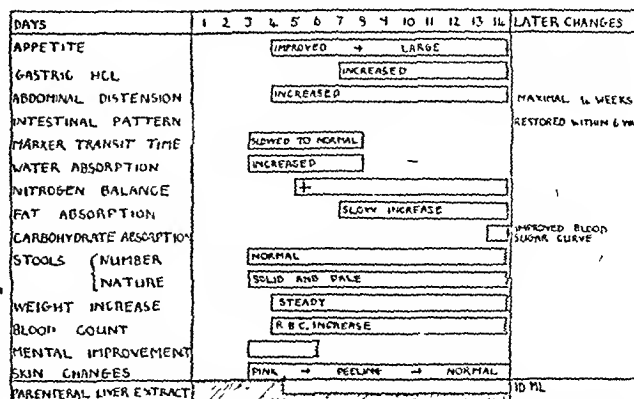 DAYS 1 2 3 4 5 6 7 8 9 10 11 12 13 14 LATER CHANGES
APPETITE IMPROVED → LARGE
GASTRIC HCL INCREASED
ABDOMINAL DISTENSION INCREASED MAXIMAL 4 WEEKS
INTESTINAL PATTERN RESTORED WITHIN 6
MARKER TRANSIT TIME SLOWED TO NORMAL
WATER ABSORPTION INCREASED
NITROGEN BALANCE +
FAT ABSORPTION SLOW INCREASE
CARBOHYDRATE ABSORPTION IMPROVED BLOOD
SUGAR CURVE
STOOLS { NUMBER NORMAL
NATURE SOLID AND PALE
WEIGHT INCREASE STEADY
BLOOD COUNT R.B.C. INCREASE
MENTAL IMPROVEMENT
SKIN CHANGES PINK → PEELING → NORMAL
PARENTERAL LIVER EXTRACT 10 ML